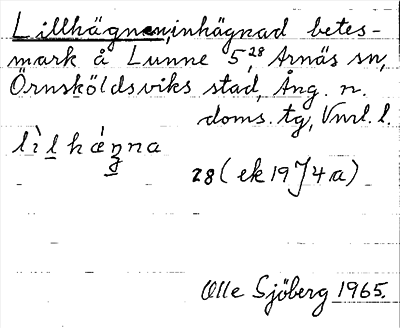 Lillhägnen, inhägnad betes-
mark å Lunne 5,28 Arnäs sn,
Örnsköldsviks stad, Ång. n.
doms. tg, Vnrl. l.
lìlhǽŋna
28 (ek 19 J 4 a)
Olle Sjöberg 1965.